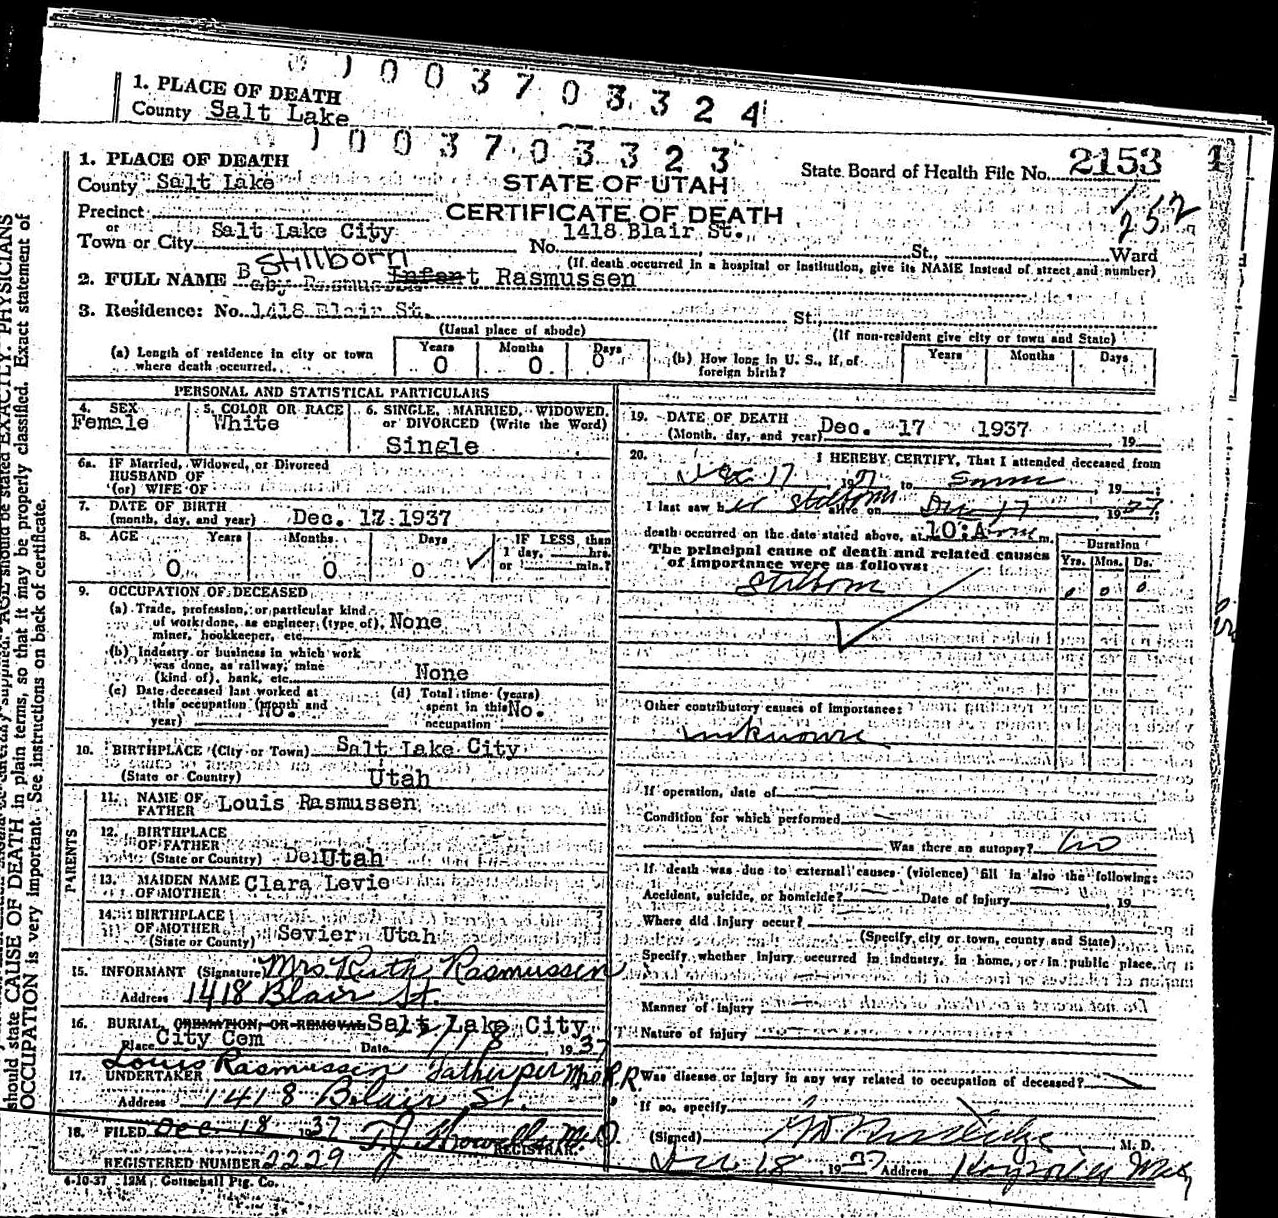 0 0 3 7 0 3 3 2 4
1. PLACE OF DEATH
County Salt Lake
0 0 3 7 0 3 3 2 3
1. PLACE OF DEATH
State Board of Health File No. 2153
County Salt Lake
STATE OF UTAH
252
Precinct
CERTIFICATE OF DEATH
or
Town or City Salt Lake City No. 1418 Blair St. St., Ward
(If death occurred in a hospital or institution, give its NAME instead of street and number)
Stillborn
2. FULL NAME Baby Rasmussen Infant Rasmussen
3. Residence: No. 1418 Blair St. St.,
(Usual place of abode) (If non-resident give city or town and State)
(a) Length of residence in city or town where death occurred. Years 0 Months 0 Days 0
(b) How long in U. S., if of foreign birth? Years Months Days
PERSONAL AND STATISTICAL PARTICULARS
4. SEX Female
5. COLOR OR RACE White
6. SINGLE, MARRIED, WIDOWED, or DIVORCED (Write the Word) Single
6a. IF Married, Widowed, or Divorced
HUSBAND OF
(or) WIFE OF
7. DATE OF BIRTH
(month, day, and year) Dec. 17 1937
8. AGE Years 0 Months 0 Days 0 IF LESS than 1 day, hrs. or min.?
9. OCCUPATION OF DECEASED
(a) Trade, profession, or particular kind of work done, as engineer (type of), miner, bookkeeper, etc. None
(b) Industry or business in which work was done, as railway, mine (kind of), bank, etc. None
(c) Date deceased last worked at this occupation (month and year) No.
(d) Total time (years) spent in this occupation No.
10. BIRTHPLACE (City or Town) Salt Lake City
(State or Country) Utah
PARENTS
11. NAME OF FATHER Louis Rasmussen
12. BIRTHPLACE OF FATHER
(State or Country) Utah
13. MAIDEN NAME OF MOTHER Clara Levie
14. BIRTHPLACE OF MOTHER
(State or Country) Sevier Utah
15. INFORMANT (Signature) Mrs Ruth Rasmussen
Address 1418 Blair St.
16. BURIAL, CREMATION, OR REMOVAL Salt Lake City
Place City Cem Date 18 1937
Louis Rasmussen Father per Mrs R.R.
17. UNDERTAKER
Address 1418 Blair St.
18. FILED Dec. 18 1937 M.D.
REGISTRAR.
REGISTERED NUMBER 2229
4-10-37 12M, Gottschall Ptg. Co.
19. DATE OF DEATH
(Month, day, and year) Dec. 17 1937 19
20. I HEREBY CERTIFY, That I attended deceased from
Dec 17 1937 to same, 19 ;
I last saw her stilborn alive on Dec 17 1937;
death occurred on the date stated above, at 10:A m.
The principal cause of death and related causes of importance were as follows:
Duration
Yrs. Mos. Ds.
Stilborn 0 0 0
Other contributory causes of importance:
unknown
If operation, date of
Condition for which performed
Was there an autopsy? no
If death was due to external causes (violence) fill in also the following:
Accident, suicide, or homicide? Date of injury 19
Where did injury occur?
(Specify city or town, county and State)
Specify whether injury occurred in industry, in home, or in public place.
Manner of injury
Nature of injury
Was disease or injury in any way related to occupation of deceased?
If so, specify
(Signed) M. D.
Dec 18 1937 Address
AGE should be stated EXACTLY. PHYSICIANS
should state CAUSE OF DEATH in plain terms, so that it may be properly classified. Exact statement of
OCCUPATION is very important. See instructions on back of certificate.